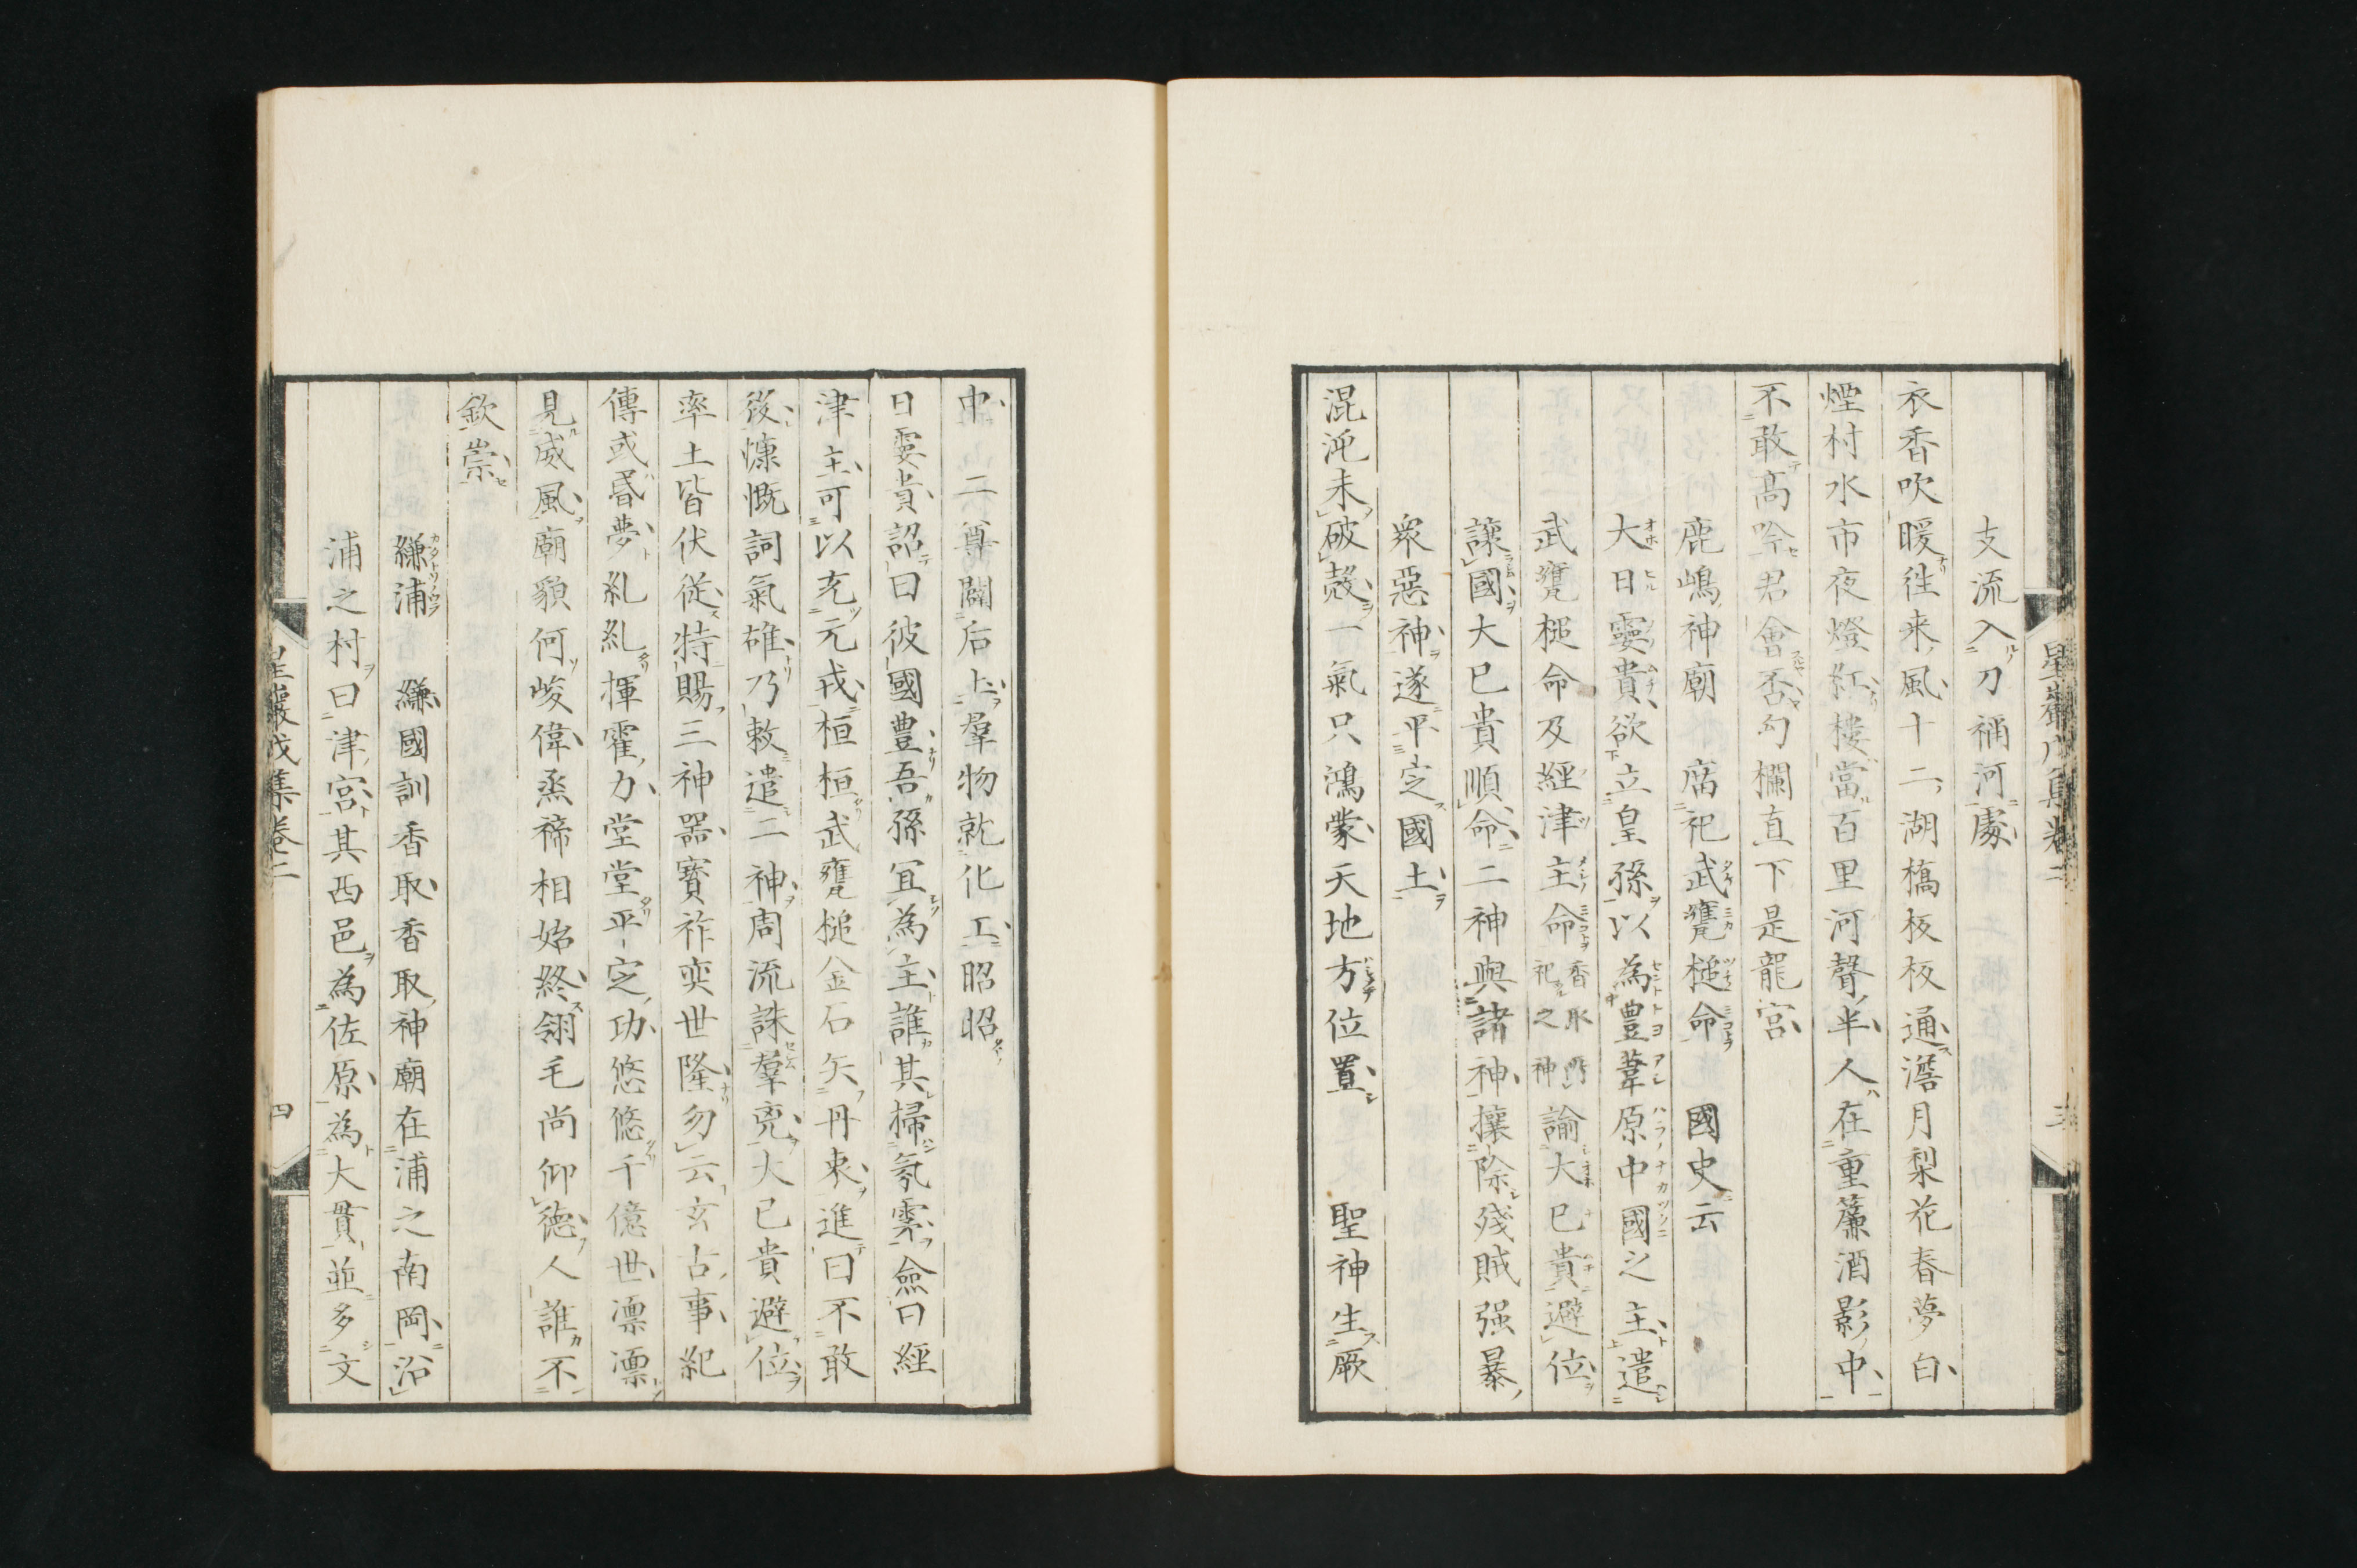 支流入刀禰河處
衣香吹暖徃来風十二湖橋板板通澹月梨花春夢白
煙村水市夜燈紅樓當百里河聲半人在重簾酒影中
不敢高吟君會否勾欄直下是龍宮
鹿嶋神廟 廟祀武甕槌命 國史云
大日孁貴欲立皇孫以為豊葦原中國之主遣
武甕槌命及經津主命香取所祀之神諭大已貴避位
讓國大已貴順命二神與諸神攘除殘賊强暴
衆惡神遂平定國土
混沌未破殼一氣只鴻蒙天地方位置 聖神生厥
中二尊闢后土羣物就化工昭昭
日孁貴詔曰彼國豊吾孫冝為主誰其掃氛雰僉曰經
津主可以充元戎桓桓武甕槌金石矢丹衷進曰不敢
後慷慨詞氣雄乃敕遣二神周流誅羣兇大已貴避位
率土皆伏從特賜三神器寶祚奕世隆勿云玄古事紀
傳或昏夢糺糺揮霍力堂堂平定功悠悠千億世凛凛
見威風廟貌何峻偉烝禘相始終翎毛尚仰德人誰不
欽崇
縑浦 縑國訓香取香取神廟在浦之南岡沿
浦之村曰津宮其西邑為佐原為大貫並多文
星巖戊集卷二
三
星巖戊集卷二
四